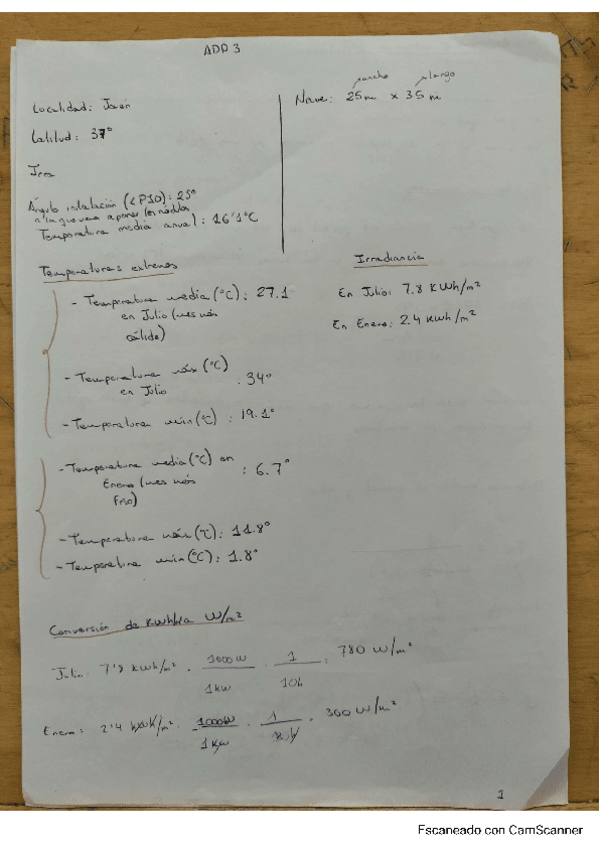 ADD 3
Localidad: Jaén
Latitud: 37°
Irra
Ángulo instalación (<P10): 25°
a la que vamos a poner los módulos
Temperatura media anual: 16'1°C
ancho largo
Nave: 25m x 35m
Temperaturas extremas
- Temperatura media (°C): 27.1
en Julio (mes más
cálido)
- Temperatura máx (°C)
en Julio : 34°
- Temperatura mín (°C) : 19.1°
- Temperatura media (°C) en
Enero (mes más : 6.7°
frío)
- Temperatura máx (°C): 11.8°
- Temperatura mín (°C): 1.8°
Irradiancia
En Julio: 7.8 KWh/m²
En Enero: 2.4 KWh/m²
Conversión de KWh/m² a W/m²
Julio: 7'8 KWh/m² · 1000W / 1kW · 1 / 10h = 780 W/m²
Enero: 2'4 KWh/m² · 1000W / 1Kw · 1 / 8h = 300 W/m²
1
Escaneado con CamScanner